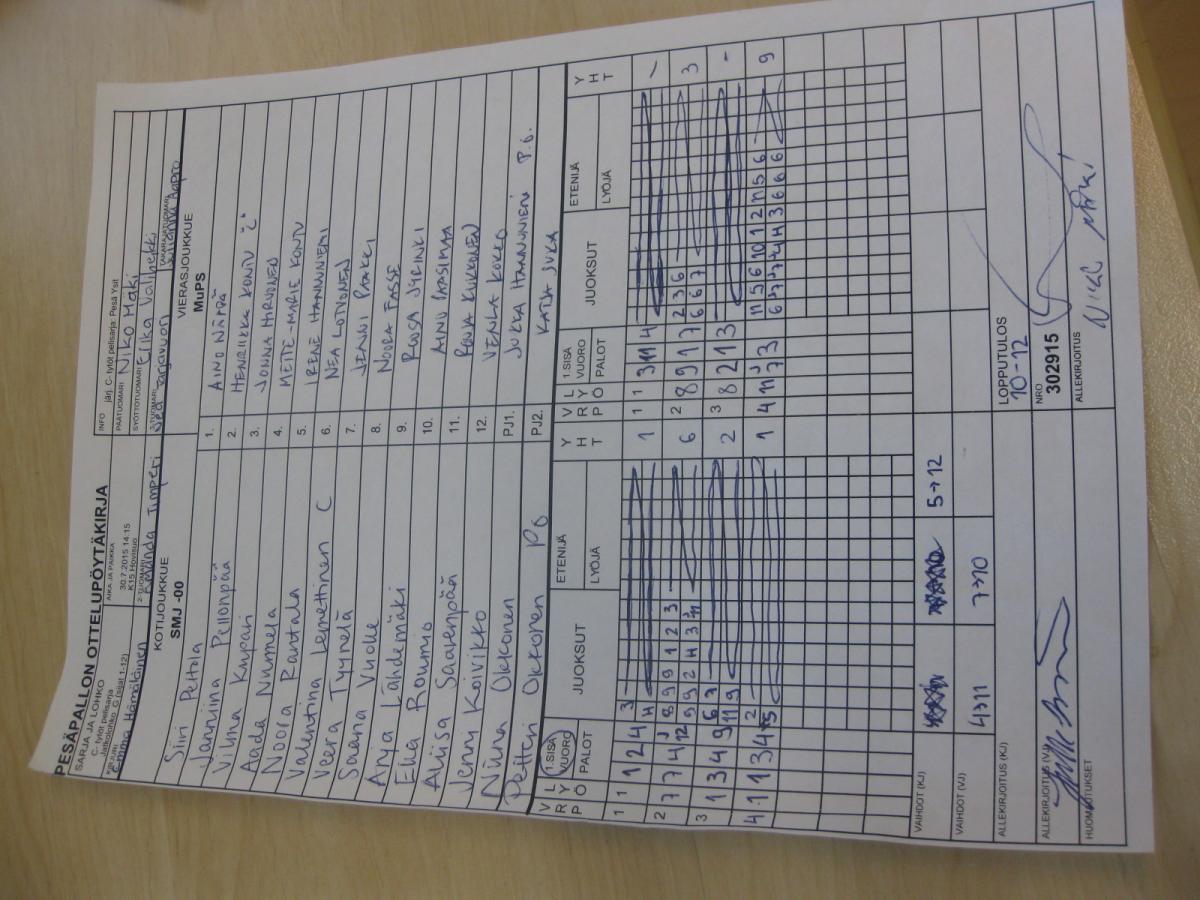 PESÄPALLON OTTELUPÖYTÄKIRJA
SARJA JA LOHKO
C- tytöt pelisarja
Jatkolohko G (sijat 1-12)
AIKA JA PAIKKA
30.7.2015 14:15
K15 Hovisuo
INFO järj. C- tytöt pelisarja: Pesä Ysit
PÄÄTUOMARI Niko Mäki
SYÖTTÖTUOMARI Erika Välihekki
KIRJURI
Emma Hämäläinen
2-TUOMARI
Amanda Timperi
3-TUOMARI
TAKARAJATUOMARI
KOTIJOUKKUE
SMJ -00
VIERASJOUKKUE
MuPS
Siiri Peltola 1. AINO NÄPPÄ
Janniina Pellonpää 2. HENRIIKKA KONTU "C"
Vilma Kupari 3. JONNA HIRVONEN
Aada Nummela 4. METTE-MARIE KONTU
Noora Rantala 5. IRENE HANNUNIEMI
Valentina Lemettinen C 6. NEA LOTVONEN
Veera Tyynelä 7. JENNI PAKKI
Saana Vuolle 8. NOORA FASSE
Anja Lähdemäki 9. ROOSA JYRINKI
Ella Rounio 10. AINO PAASIMAA
Aliisa Saarenpää 11. RONJA KUKKONEN
Jenny Koivikko 12. VENLA KOKKO
Niina Okkonen PJ1. JUKKA HANNUNIEMI P.G.
Petteri Okkonen PG PJ2. KATJA JUKA
V R L Y Ö 1.SISÄ VUORO PALOT JUOKSUT ETENIJÄ LYÖJÄ Y H T V R L Y Ö 1.SISÄ VUORO PALOT JUOKSUT ETENIJÄ LYÖJÄ Y H T
1 1 1 2 4 3 1 1 1 3 11 4 -
4
2 7 7 4 12 8 9 9 1 2 3 6 2 8 9 1 7 2 3 6 3
9 9 2 4 3 11 6 6 7
3 1 3 4 9 6 7 2 3 8 2 1 3 -
11 9
4 1 1 3 4 2 1 4 11 7 3 11 5 6 10 12 11 5 6 9
5 6 7 7 4 4 3 6 6 6
VAIHDOT (KJ) 5→12
VAIHDOT (VJ) 4→11 7→10
ALLEKIRJOITUS (KJ) LOPPUTULOS
10-12
ALLEKIRJOITUS (VJ) NRO
302915
HUOMAUTUKSET ALLEKIRJOITUS
Niko Mäki